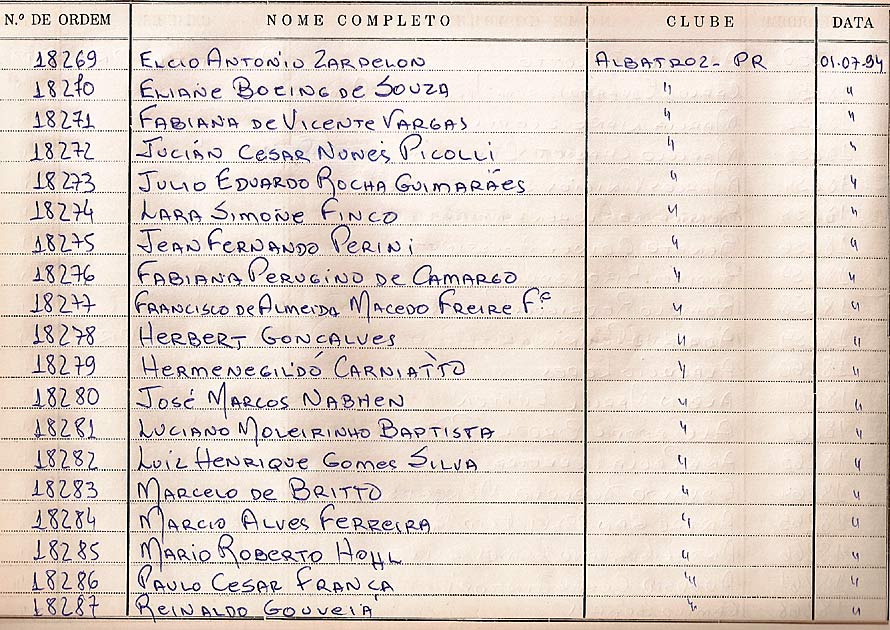 N.º DE ORDEM NOME COMPLETO CLUBE DATA
18269 ELCIO ANTONIO ZARDELON ALBATROZ- PR 01.07.94
18270 ELIANE BOEING DE SOUZA " "
18271 FABIANA DE VICENTE VARGAS " "
18272 JUCIÁN CESAR NUNES PICOLLI " "
18273 JULIO EDUARDO ROCHA GUIMARÃES " "
18274 LARA SIMONE FINCO " "
18275 JEAN FERNANDO PERINI " "
18276 FABIANA PERUGINO DE CAMARGO " "
18277 FRANCISCO DE ALMEIDA MACEDO FREIRE Fº " "
18278 HERBERT GONCALVES " "
18279 HERMENEGILDO CARNIATTO " "
18280 JOSÉ MARCOS NABHEN " "
18281 LUCIANO MOLEIRINHO BAPTISTA " "
18282 LUIZ HENRIQUE GOMES SILVA " "
18283 MARCELO DE BRITTO " "
18284 MARCIO ALVES FERREIRA " "
18285 MARIO ROBERTO HOHL " "
18286 PAULO CESAR FRANÇA " "
18287 REINALDO GOUVEIA " "